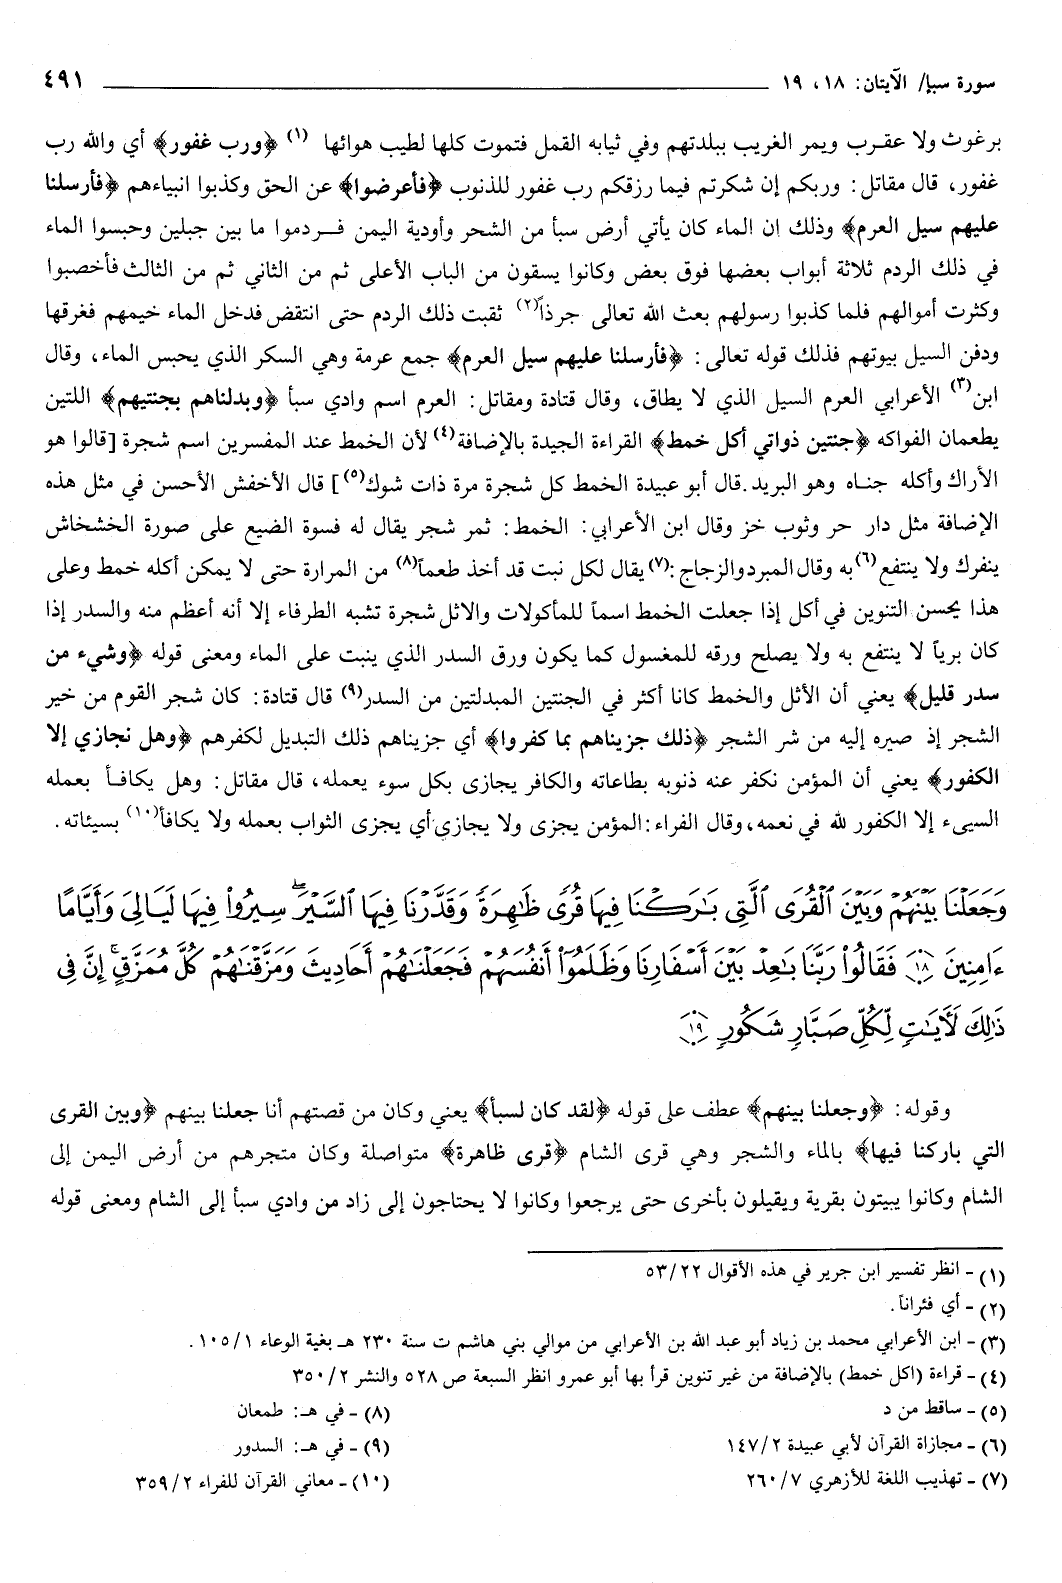 سورة سبإ/ الآيتان: ١٨، ١٩ ٤٩١
برغوث ولا عقرب ويمر الغريب ببلدتهم وفي ثيابه القمل فتموت كلها لطيب هوائها (١) ﴿ورب غفور﴾ أي والله رب
غفور، قال مقاتل: وربكم إن شكرتم فيما رزقكم رب غفور للذنوب ﴿فأعرضوا﴾ عن الحق وكذبوا انبياءهم ﴿فأرسلنا
عليهم سيل العرم﴾ وذلك ان الماء كان يأتي أرض سبأ من الشحر وأودية اليمن فردموا ما بين جبلين وحبسوا الماء
في ذلك الردم ثلاثة أبواب بعضها فوق بعض وكانوا يسقون من الباب الأعلى ثم من الثاني ثم من الثالث فأخصبوا
وكثرت أموالهم فلما كذبوا رسولهم بعث الله تعالى جرذاً(٢) ثقبت ذلك الردم حتى انتقض فدخل الماء خيمهم فغرقها
ودفن السيل بيوتهم فذلك قوله تعالى: ﴿فأرسلنا عليهم سيل العرم﴾ جمع عرمة وهي السكر الذي يحبس الماء، وقال
ابن(٣) الأعرابي العرم السيل الذي لا يطاق، وقال قتادة ومقاتل: العرم اسم وادي سبأ ﴿وبدلناهم بجنتيهم﴾ اللتين
يطعمان الفواكه ﴿جنتين ذواتي أكل خمط﴾ القراءة الجيدة بالإضافة(٤) لأن الخمط عند المفسرين اسم شجرة [قالوا هو
الأراك وأكله جناه وهو البريد.قال أبو عبيدة الخمط كل شجرة مرة ذات شوك(٥)] قال الأخفش الأحسن في مثل هذه
الإضافة مثل دار حر وثوب خز وقال ابن الأعرابي: الخمط: ثمر شجر يقال له فسوة الضيع على صورة الخشخاش
ينفرك ولا ينتفع(٦) به وقال المبرد والزجاج:(٧) يقال لكل نبت قد أخذ طعماً(٨) من المرارة حتى لا يمكن أكله خمط وعلى
هذا يحسن التنوين في أكل إذا جعلت الخمط اسماً للمأكولات والاثل شجرة تشبه الطرفاء إلا أنه أعظم منه والسدر إذا
كان برياً لا ينتفع به ولا يصلح ورقه للمغسول كما يكون ورق السدر الذي ينبت على الماء ومعنى قوله ﴿وشيء من
سدر قليل﴾ يعني أن الأثل والخمط كانا أكثر في الجنتين المبدلتين من السدر(٩) قال قتادة: كان شجر القوم من خير
الشجر إذ صيره إليه من شر الشجر ﴿ذلك جزيناهم بما كفروا﴾ أي جزيناهم ذلك التبديل لكفرهم ﴿وهل نجازي إلا
الكفور﴾ يعني أن المؤمن نكفر عنه ذنوبه بطاعاته والكافر يجازى بكل سوء يعمله، قال مقاتل: وهل يكافأ بعمله
السيىء إلا الكفور لله في نعمه، وقال الفراء: المؤمن يجزى ولا يجازي أي يجزى الثواب بعمله ولا يكافأ(١٠) بسيئاته.
وَجَعَلْنَا بَيْنَهُمْ وَبَيْنَ ٱلْقُرَى ٱلَّتِى بَٰرَكْنَا فِيهَا قُرًى ظَٰهِرَةً وَقَدَّرْنَا فِيهَا ٱلسَّيْرَ ۖ سِيرُوا۟ فِيهَا لَيَالِىَ وَأَيَّامًا
ءَامِنِينَ ﴿١٨﴾ فَقَالُوا۟ رَبَّنَا بَٰعِدْ بَيْنَ أَسْفَارِنَا وَظَلَمُوٓا۟ أَنفُسَهُمْ فَجَعَلْنَٰهُمْ أَحَادِيثَ وَمَزَّقْنَٰهُمْ كُلَّ مُمَزَّقٍ ۚ إِنَّ فِى
ذَٰلِكَ لَـَٔايَٰتٍ لِّكُلِّ صَبَّارٍ شَكُورٍ ﴿١٩﴾
وقوله: ﴿وجعلنا بينهم﴾ عطف على قوله ﴿لقد كان لسبأ﴾ يعني وكان من قصتهم أنا جعلنا بينهم ﴿وبين القرى
التي باركنا فيها﴾ بالماء والشجر وهي قرى الشام ﴿قرى ظاهرة﴾ متواصلة وكان متجرهم من أرض اليمن إلى
الشام وكانوا يبيتون بقرية ويقيلون بأخرى حتى يرجعوا وكانوا لا يحتاجون إلى زاد من وادي سبأ إلى الشام ومعنى قوله
(١) - انظر تفسير ابن جرير في هذه الأقوال ٥٣/٢٢
(٢) - أي فئراناً.
(٣) - ابن الأعرابي محمد بن زياد أبو عبد الله بن الأعرابي من موالي بني هاشم ت سنة ٢٣٠ هـ بغية الوعاء ١٠٥/١.
(٤) - قراءة (اكل خمط) بالإضافة من غير تنوين قرأ بها أبو عمرو انظر السبعة ص ٥٢٨ والنشر ٣٥٠/٢
(٥) - ساقط من د
(٦) - مجازاة القرآن لأبي عبيدة ١٤٧/٢
(٧) - تهذيب اللغة للأزهري ٢٦٠/٧
(٨) - في هـ: طمعان
(٩) - في هـ: السدور
(١٠) - معاني القرآن للفراء ٣٥٩/٢